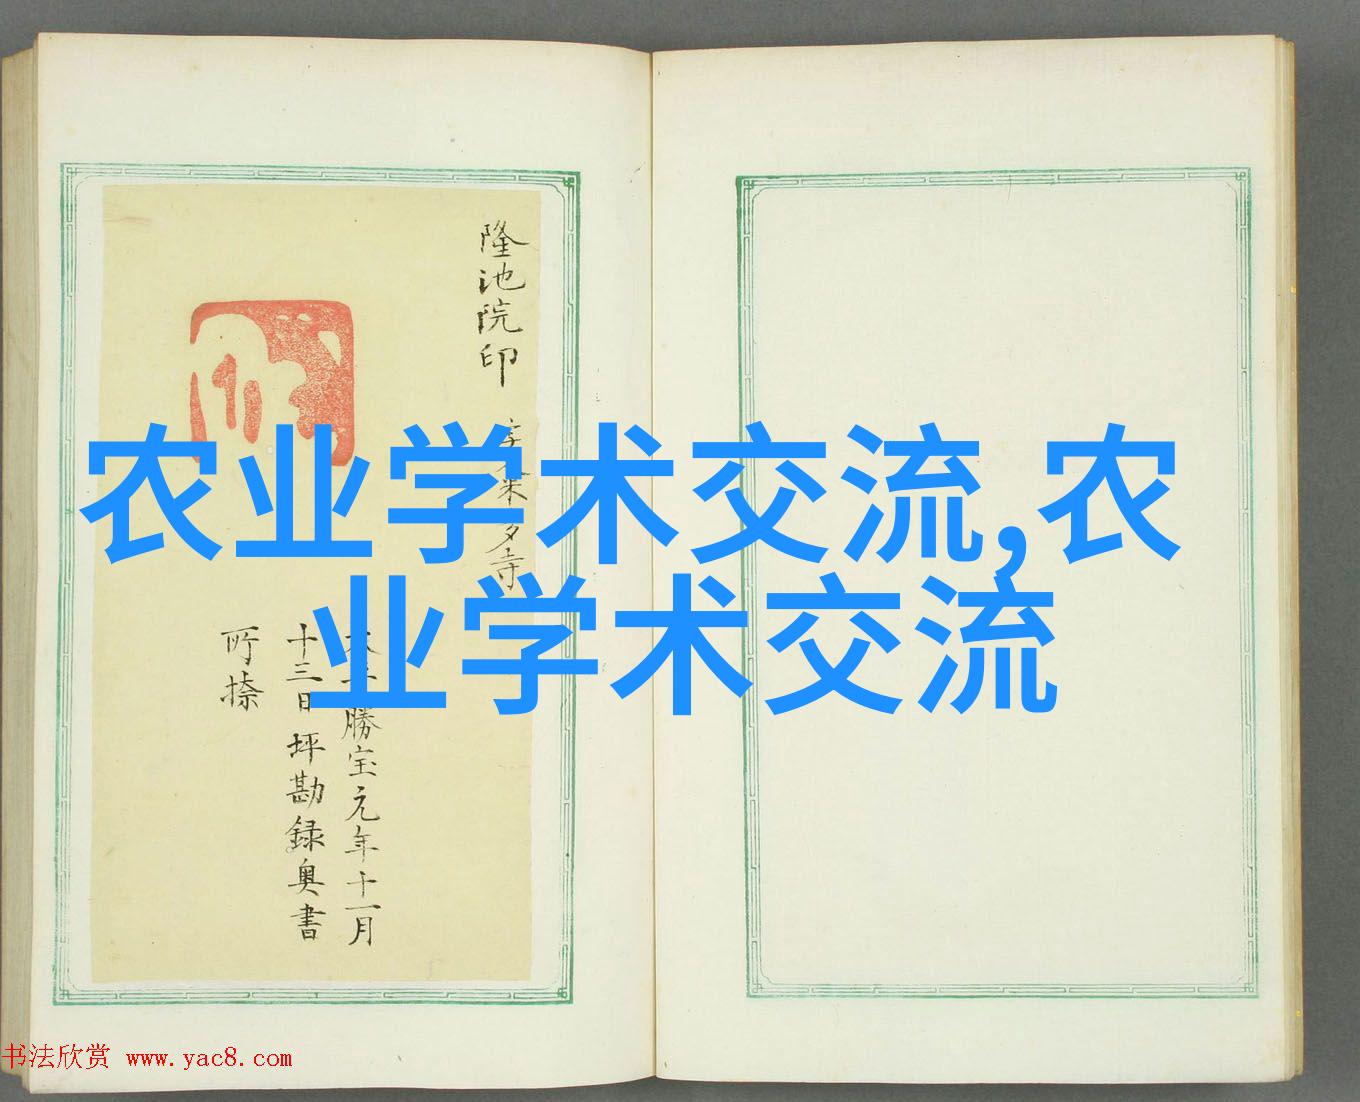 隆池院印
寺
勝宝元年十一月
十三日坪勘録奥書
所捺
农业学术交流,农
业学术交流
书法欣赏 www.yac8.com